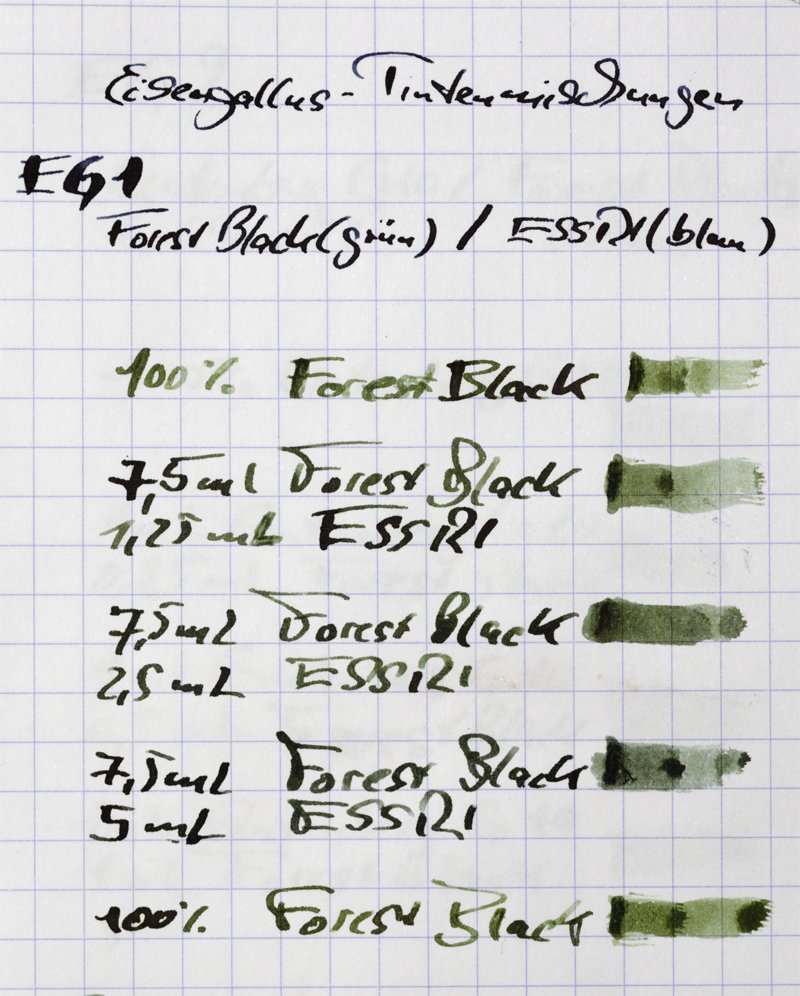 Eisengallus-Tintenmischungen
EG1
Forest Black (grün) / ESSRI (blau)
100% Forest Black
7,5 ml Forest Black
1,25 mL ESSRI
7,5 mL Forest Black
2,5 mL ESSRI
7,5 mL Forest Black
5 mL ESSRI
100% Forest Black